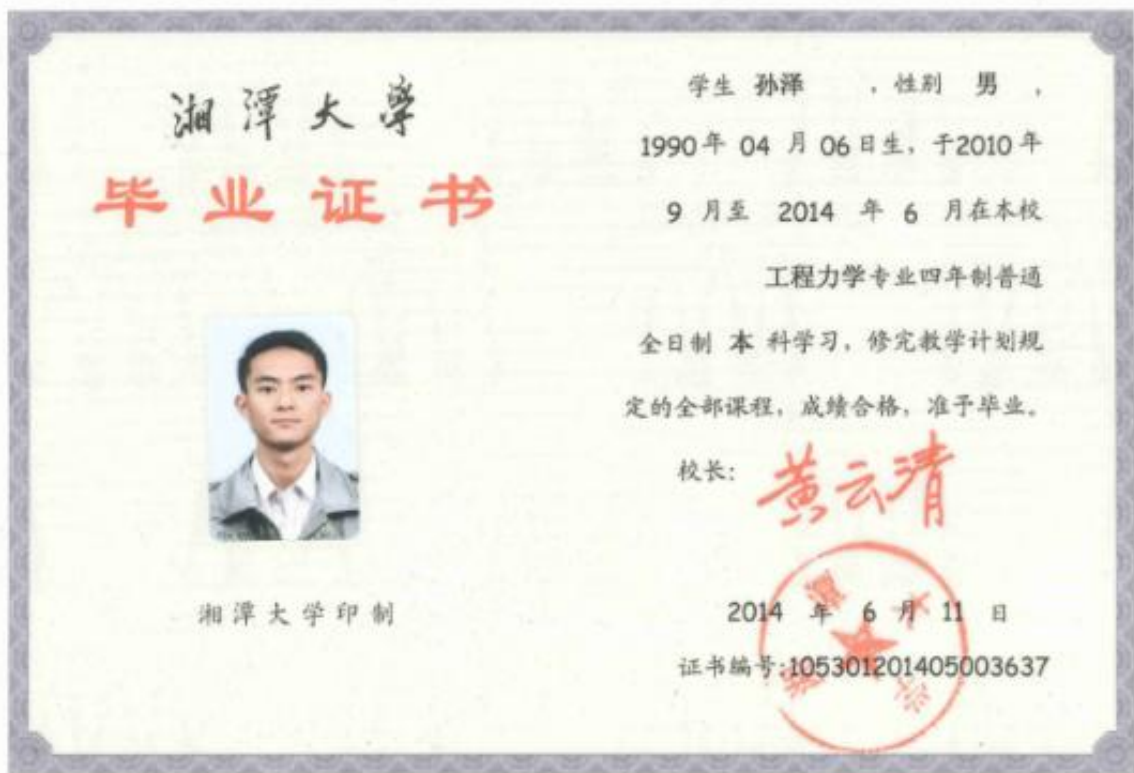 湘潭大学
毕业证书
湘潭大学印制
学生 孙泽 ，性别 男 ，
1990年 04 月 06日生，于2010年
9 月至 2014 年 6 月在本校
工程力学专业四年制普通
全日制 本 科学习，修完教学计划规
定的全部课程，成绩合格，准予毕业。
校长：
黄云清
2014 年 6 月 11 日
证书编号:105301201405003637
湘潭大学